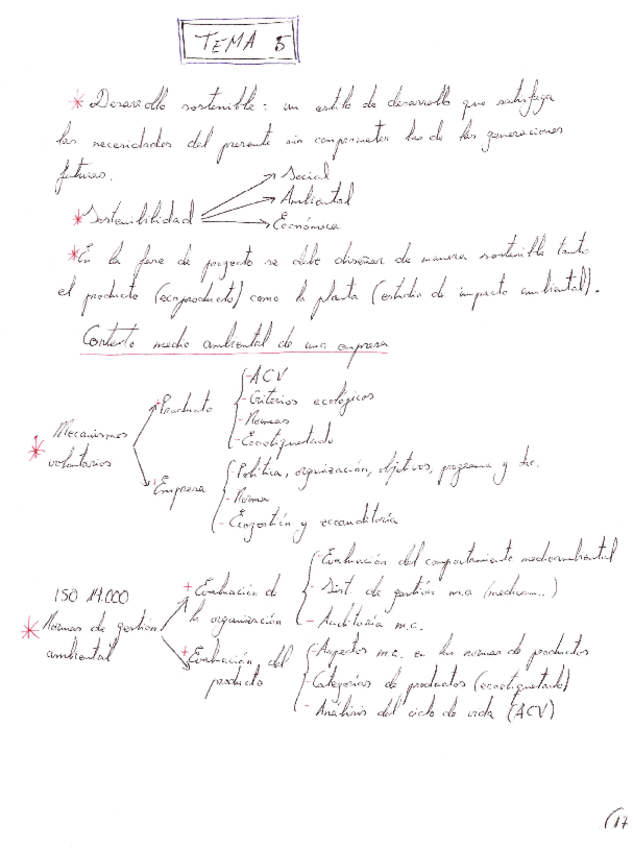 TEMA 5
* Desarrollo sostenible: un estilo de desarrollo que satisfaga
las necesidades del presente sin comprometer las de las generaciones
futuras.
Social
Ambiental
* Sostenibilidad
Económica
* En la fase de proyecto se debe diseñar de manera sostenible tanto
el producto (ecoproducto) como la planta (estudio de impacto ambiental).
Contexto medio ambiental de una empresa
- ACV
+ Producto
- Criterios ecológicos
- Normas
- Ecoetiquetado
* Mecanismos
voluntarios
- Política, organización, objetivos, programa y dir.
+ Empresa
- Norma
- Ecogestión y ecoauditoría
- Evaluación del comportamiento medioambiental
ISO 14.000
+ Evaluación de
la organización
- Sist. de gestión m.a (medioam..)
- Auditoría m.a.
* Normas de gestión
ambiental
+ Evaluación del
producto
- Aspectos m.a. en las normas de productos
- Categorías de productos (ecoetiquetado)
- Análisis del ciclo de vida (ACV)
(17